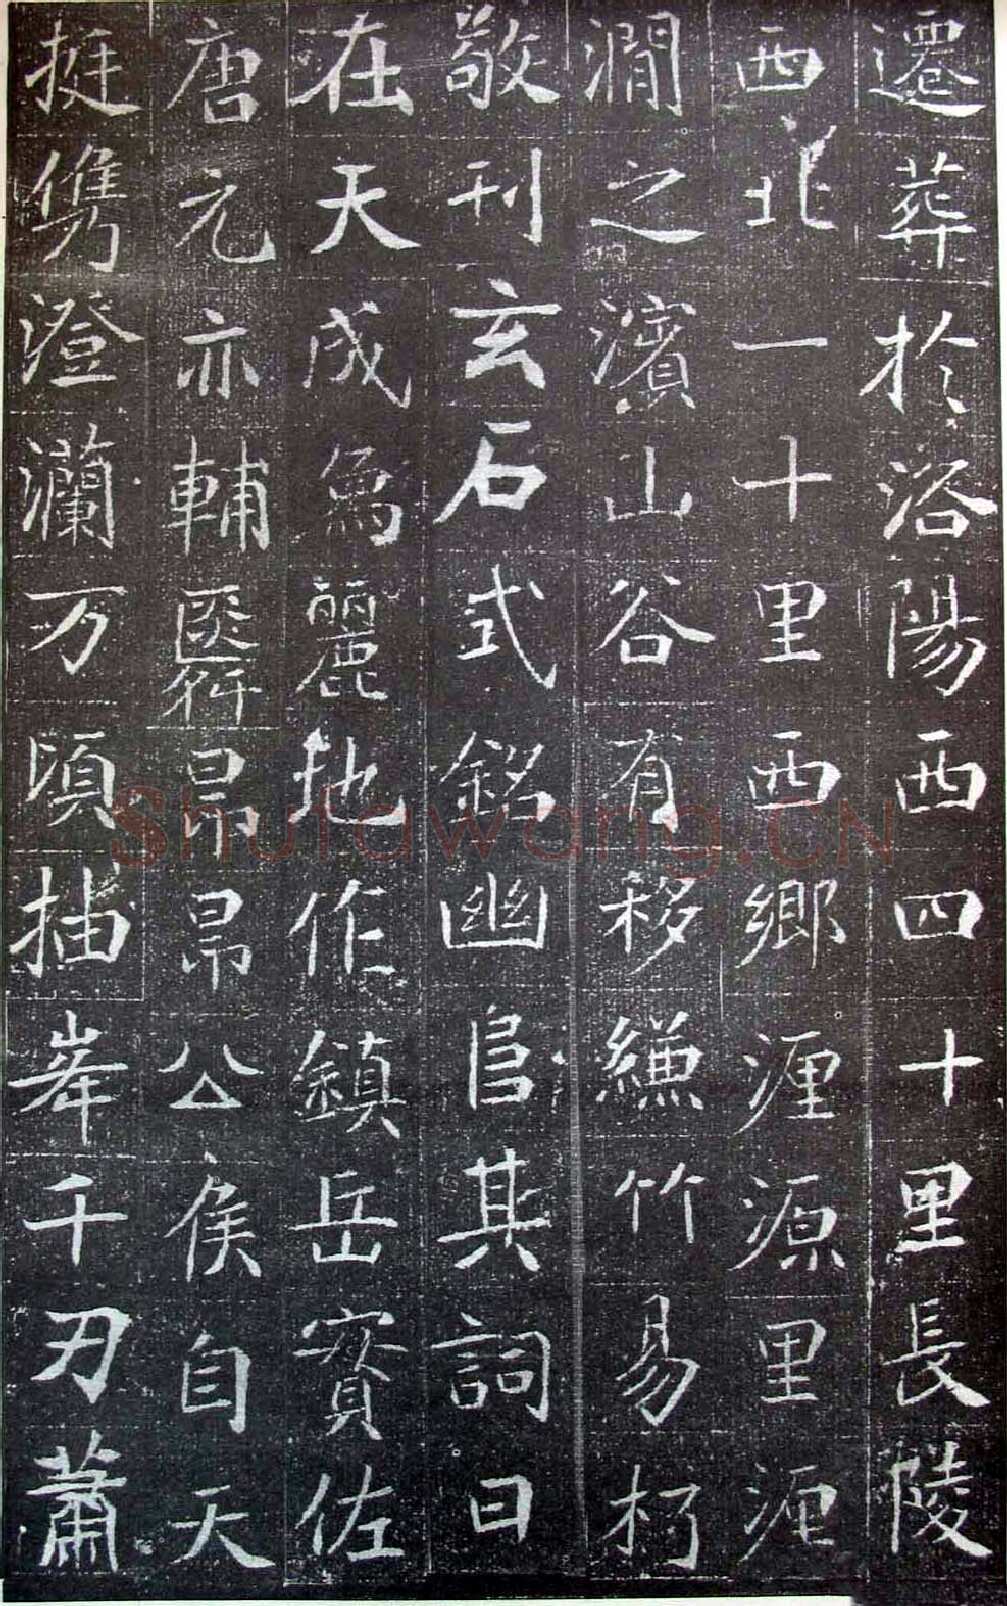 遷葬於洛陽西四十里長陵
西北一十里西鄉瀍源里瀍
澗之濱山谷有移縑竹易朽
敬刊玄石式銘幽阜其詞曰
在天成象麗地作鎮岳實佐
唐元亦輔舜昂昂公侯自天
挺雋澄瀾万頃插峯千刃蕭
Shufawang.CN